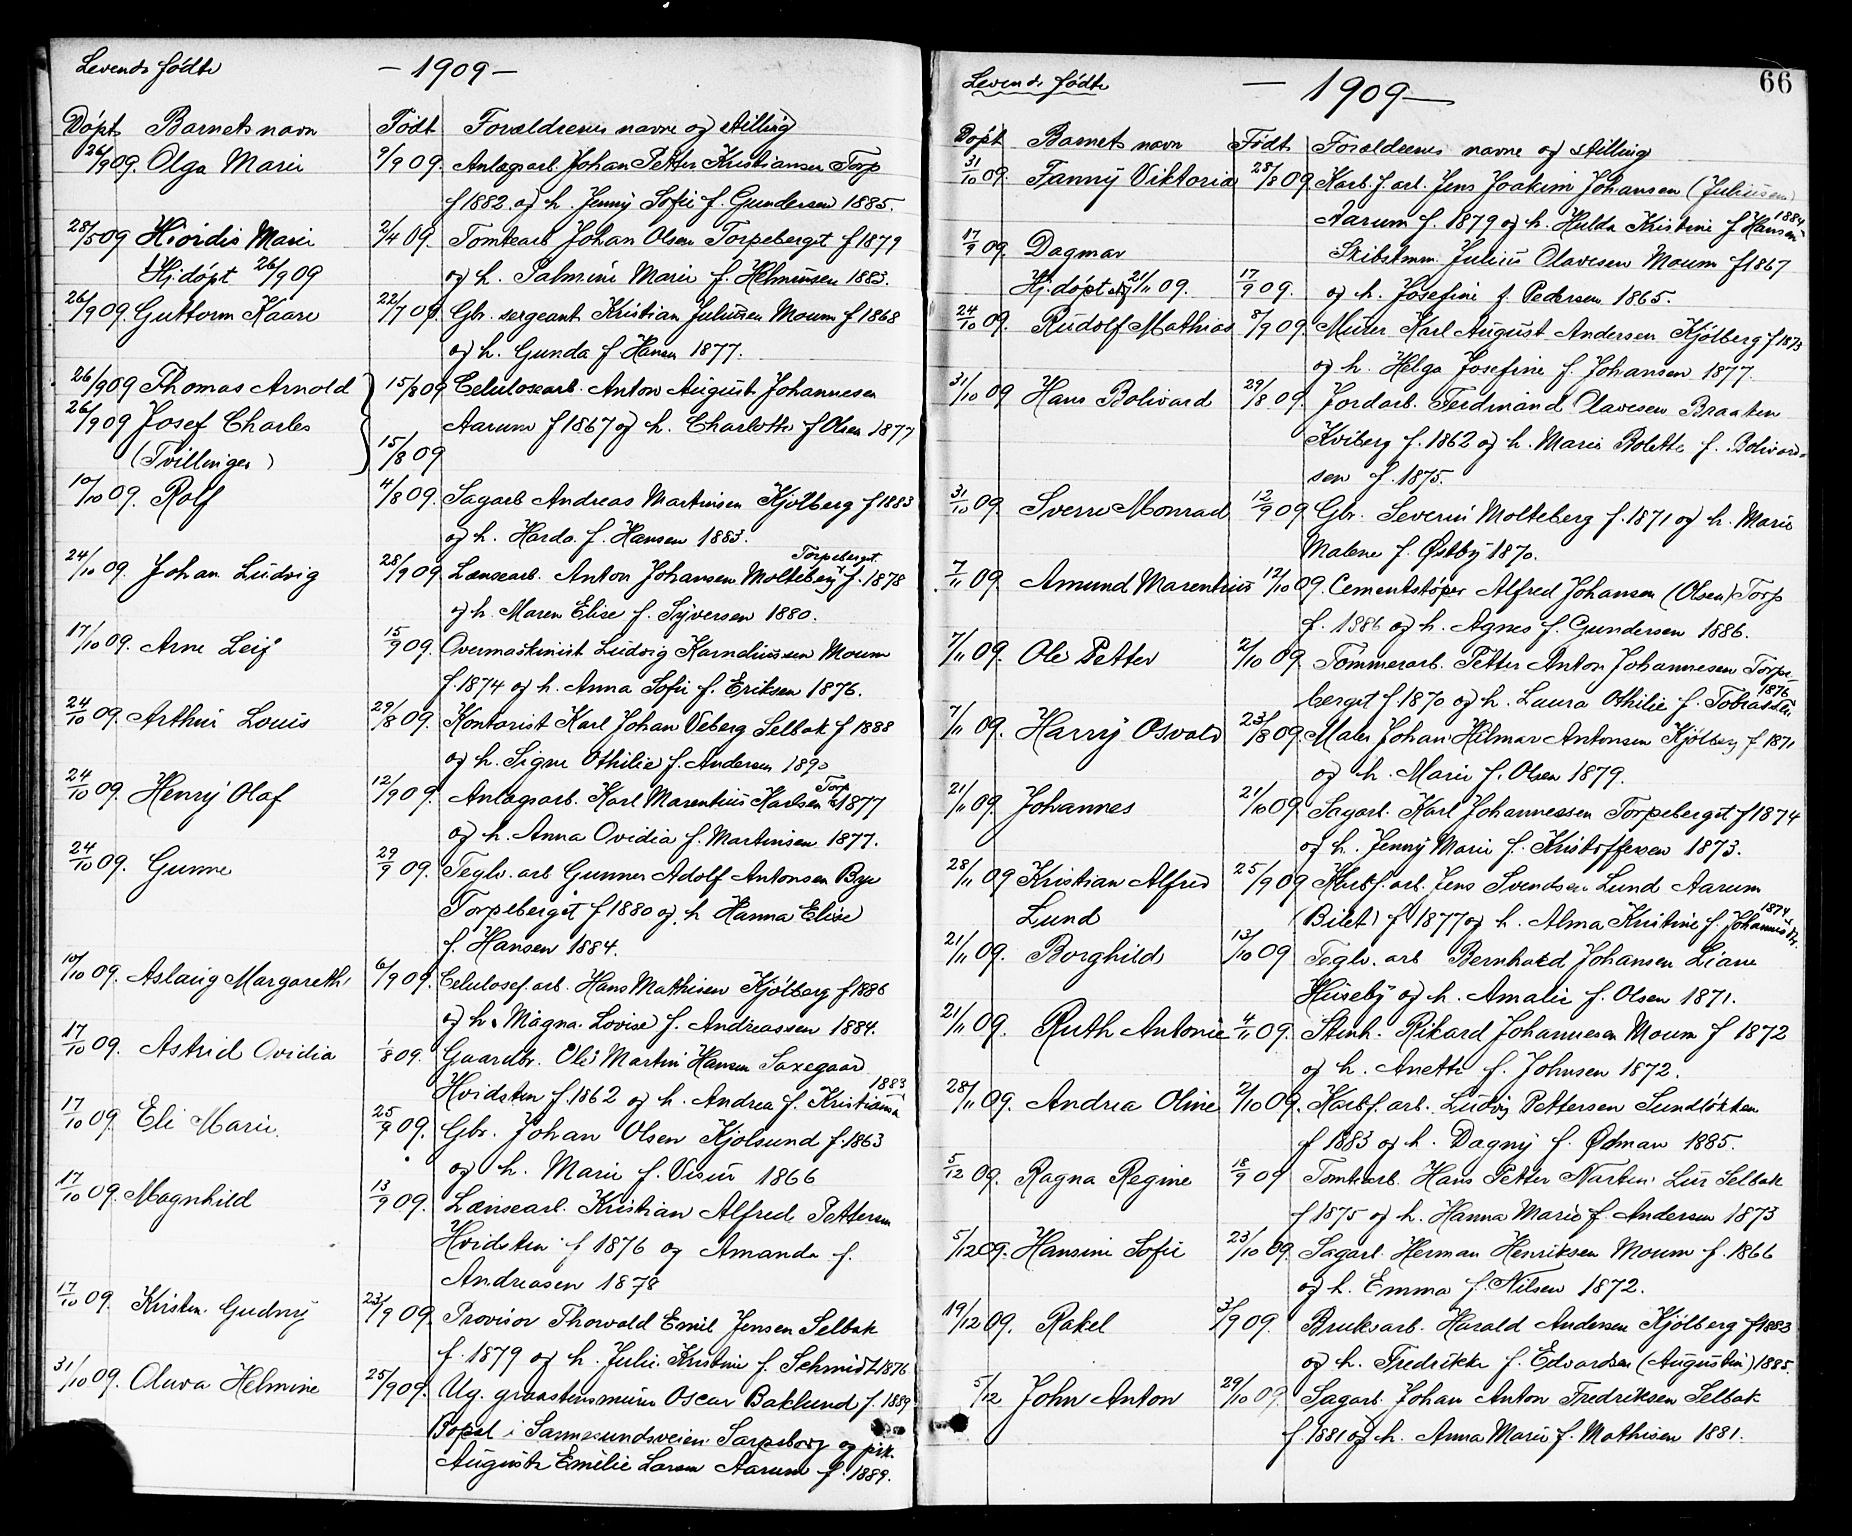 Levende fødte — 1909 —
Döpt Barnets navn Født Forældrenes navne og stilling
26/9 09. Olga Marie 9/9 09. Anlægsarb. Johan Petter Kristiansen Torp
f 1882. og h. Jenny Sofie f. Gundersen 1885.
28/5 09 Hjördis Marie 2/4 09. Tomtearb Johan Olsen Torpeberget f 1879
Hj.döpt 26/9 09 og h. Palmine Marie f. Helminsen 1883.
26/9 09. Guttorm Kaare 22/7 09. Gbr. sergeant Kristian Juliussen Moum f 1868
og h. Gunda f Hansen 1877.
26/9 09 Thomas Arnold 15/8 09 Celulosearb. Anton August Johannesen
26/9 09 Josef Charles Aarum f 1867 og h. Charlotte f Olsen 1877
(Tvillinger) 15/8 09
10/10 09. Rolf 4/8 09. Sagarb Andreas Martinsen Kjölberg f 1883
og h. Harda f. Hansen 1883.
24/10 09. Johan Ludvig 28/9 09. Lænsearb. Anton Johansen Molteberg Torpeberget f. 1878
og h. Maren Elise f. Syversen 1880.
17/10 09. Arne Leif 15/9 09. Overmaskinist Ludvig Karneliussen Moum
f. 1874 og h. Anna Sofie f. Eriksen 1876.
24/10 09. Arthur Louis 29/8 09. Kontorist Karl Johan Veberg Selbak f 1888
og h. Signe Othilie f. Andersen 1890
24/10 09. Henry Olaf 12/9 09. Anlægsarb. Karl Marentius Karlsen Torp f. 1877
og h. Anna Ovidia f. Martinsen 1877.
24/10 09. Gunne 29/9 09. Teglv. arb Gunner Adolf Antonsen Bye
Torpeberget f 1880 og h Hanna Elise
f. Hansen 1884.
10/10 09. Aslaug Margareth 6/9 09. Celulosef. arb. Hans Mathisen Kjölberg f 1886
og h. Magna Lovise f. Andreassen 1884.
17/10 09. Astrid Ovidia 1/8 09. Gaardbr. Ole Martin Hansen Saxegaard
Hvidsten f. 1862 og h. Andrea f. Kristiansen 1883
17/10 09. Eli Marie. 25/9 09. Gbr. Johan Olsen Kjölsund f. 1863
og h. Marie f. Visur 1866
17/10 09. Magnhild 13/9 09. Lænsearb. Kristian Alfred Pettersen
Hvidsten f 1876 og Amanda f.
Andreasen 1878
17/10 09. Kirsten Gudny 23/9 09. Provisor Thorvald Emil Jensen Selbak
f. 1879 og h. Julie Kristine f. Schmidt 1876
31/10 09. Oluva Helmine 25/9 09. Ug. graastensmurer Oscar Baklund f. 1889
Bopel i Sannesundsveien Sarpsborg og pike
Auguste Emilie Larsen Aarum f. 1889.
Levende fødte — 1909 — 66
Döpt Barnets navn Födt Forældrenes navne og stilling
31/10 09. Fanny Viktoria 28/8 09 Karb. f. arb. Jens Joakim Johansen (Juliussen)
Aarum f. 1879 og h. Hulda Kristine f Hansen 1884
17/9 09. Dagmar Skibstmm. Julius Olavesen Moum f 1867
Hj. döpt 21/11 09. 17/9 09. og h. Josefine f. Pedersen 1865.
24/10 09. Rudolf Mathias 8/9 09. Murer Karl August Andersen Kjölberg f 1873
og h. Helga Josefine f. Johansen 1877.
31/10 09 Hans Bolivard 29/8 09. Jordarb. Ferdinand Olavesen Braaten
Kviberg f. 1862 og h. Marie Bolette f. Bolivard-
sen f. 1875.
31/10 09. Sverre Monrad 12/9 09 Gbr. Severin Molteberg f. 1871 og h. Marie
Malene f. Østby 1870.
7/11 09. Amund Marentius 12/10 09. Cementstöper Alfred Johansen (Olsen) Torp
f. 1886 og h. Agnes f. Gundersen 1886.
7/11 09. Ole Petter 2/10 09. Tommerarb. Petter Anton Johannesen Torpe-
berget f. 1870 og h. Laura Othilie f. Tobiassen 1876
7/11 09. Harry Osvald 23/8 09. Maler Johan Hilmar Antonsen Kjölberg f 1871
og h. Marie f. Olsen 1879.
21/11 09. Johannes 21/10 09. Sagarb. Karl Johannessen Torpeberget f 1874
og h. Jenny Marie f. Kristoffersen 1873.
28/11 09 Kristian Alfred 25/9 09 Karbf. arb. Jens Svendsen Lund Aarum
Lund (Bilet) f 1877 og h. Alma Kristine f. Johannesen 1874
21/11 09. Borghild 13/10 09 Teglv. arb Bernhard Johansen Liane
Huseby og h. Amalie f. Olsen 1871.
21/11 09. Ruth Antonie 4/11 09. Stenh. Rikard Johannesen Moum f 1872
og h. Anette f. Johnsen 1872.
28/11 09. Andrea Oline 2/10 09. Karbf. arb. Ludvig Pettersen Sundlökken
f 1883 og h. Dagny f. Ödman 1885.
5/12 09. Ragna Regine 18/9 09 Tomtearb. Hans Petter Narten Lur Selbak
f 1875 og h. Hanna Marie f. Andersen 1873
5/12 09. Hansine Sofie 23/10 09. Sagarb. Herman Henriksen Moum f. 1866
og h. Emma f. Nilsen 1872.
19/12 09. Rakel 3/9 09. Bruksarb. Harald Andersen Kjölberg f 1883
og h. Fredrikke f. Edvardsen (Augustin) 1885.
5/12 John Anton 29/10 09. Sagarb. Johan Anton Fredriksen Selbak
f. 1881 og h. Anna Marie f. Mathisen 1881.